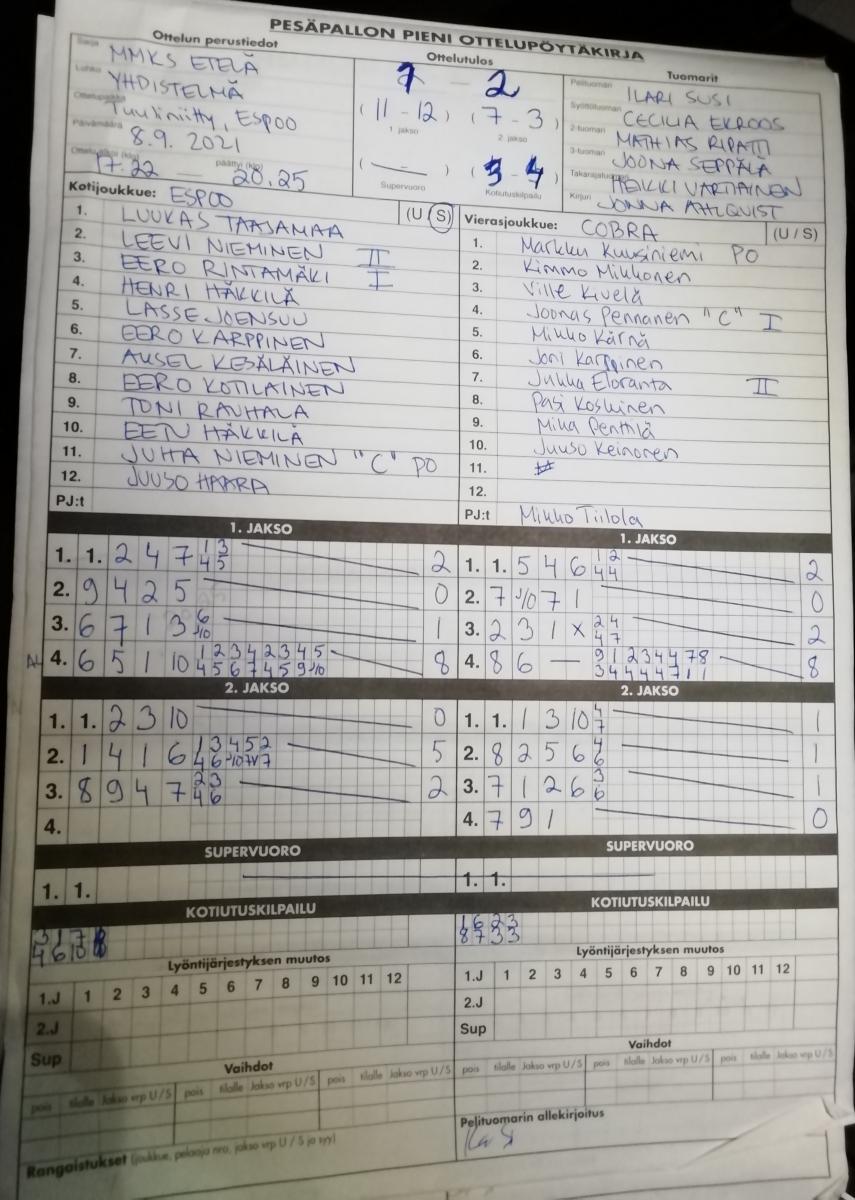 PESÄPALLON PIENI OTTELUPÖYTÄKIRJA
Ottelun perustiedot
Sarja MMKS ETELÄ
Lohko YHDISTELMÄ
Ottelupaikka Tuuliniitty, ESPOO
Päivämäärä 8.9.2021
Ottelu alkoi (klo) 17.22 — päättyi (klo) 20.25
Ottelutulos
7 — 2
(11 - 12) (7 - 3)
1. jakso 2. jakso
( — ) (3 - 4)
Supervuoro Kotiutuskilpailu
Tuomarit
Pelituomari ILARI SUSI
Syöttötuomari CECILIA EKROOS
2-tuomari MATHIAS RIPATTI
3-tuomari JOONA SEPPÄLÄ
Takarajatuomari HEIKKI VARTIAINEN
Kirjuri JONNA AHLQUIST
Kotijoukkue: ESPOO (U S)
1. LUUKAS TAAJAMAA
2. LEEVI NIEMINEN II
3. EERO RINTAMÄKI I
4. HENRI HÄKKILÄ
5. LASSE JOENSUU
6. EERO KARPPINEN
7. AKSEL KESÄLÄINEN
8. EERO KOTILAINEN
9. TONI RAUHALA
10. EETU HÄKKILÄ
11. JUHA NIEMINEN "C" PO
12. JUUSO HAARA
PJ:t
Vierasjoukkue: COBRA (U / S)
1. Markku Kuusiniemi PO
2. Kimmo Mikkonen
3. Ville Kivelä
4. Joonas Pennanen "C" I
5. Mikko Kärnä
6. Joni Karppinen
7. Jukka Eloranta II
8. Pasi Koskinen
9. Mika Penttilä
10. Juuso Keinonen
11.
12.
PJ:t Mikko Tiilola
1. JAKSO
1. 1. 2 4 7 1 3 2
4 5
2. 9 4 2 5 0
3. 6 7 1 3 6 1
10
4. 6 5 1 10 1 2 3 4 2 3 4 5 8
4 5 6 7 4 5 9 10
1. JAKSO
1. 1. 5 4 6 1 2 2
4 4
2. 7 10 7 1 0
3. 2 3 1 x 2 4 2
4 7
4. 8 6 — 9 1 2 3 4 4 7 8 8
3 4 4 4 4 7 1 1
2. JAKSO
1. 1. 2 3 10 0
2. 1 4 1 6 1 3 4 5 2 5
4 6 10 7
3. 8 9 4 7 2 3 2
4 6
4.
2. JAKSO
1. 1. 1 3 10 4 1
7
2. 8 2 5 6 4 1
6
3. 7 1 2 6 3 1
6
4. 7 9 1 0
SUPERVUORO
1. 1.
SUPERVUORO
1. 1.
KOTIUTUSKILPAILU
3 1 7
4 6 10
KOTIUTUSKILPAILU
1 6 2 3
8 7 3 3
Lyöntijärjestyksen muutos
1.J 1 2 3 4 5 6 7 8 9 10 11 12
2.J
Sup
Lyöntijärjestyksen muutos
1.J 1 2 3 4 5 6 7 8 9 10 11 12
2.J
Sup
Vaihdot
pois tilalle Jakso vrp U/S pois tilalle Jakso vrp U/S pois tilalle Jakso vrp U/S
Vaihdot
pois tilalle Jakso vrp U/S pois tilalle Jakso vrp U/S pois tilalle Jakso vrp U/S
Rangaistukset (joukkue, pelaaja nro, jakso vrp U / S ja syy)
Pelituomarin allekirjoitus